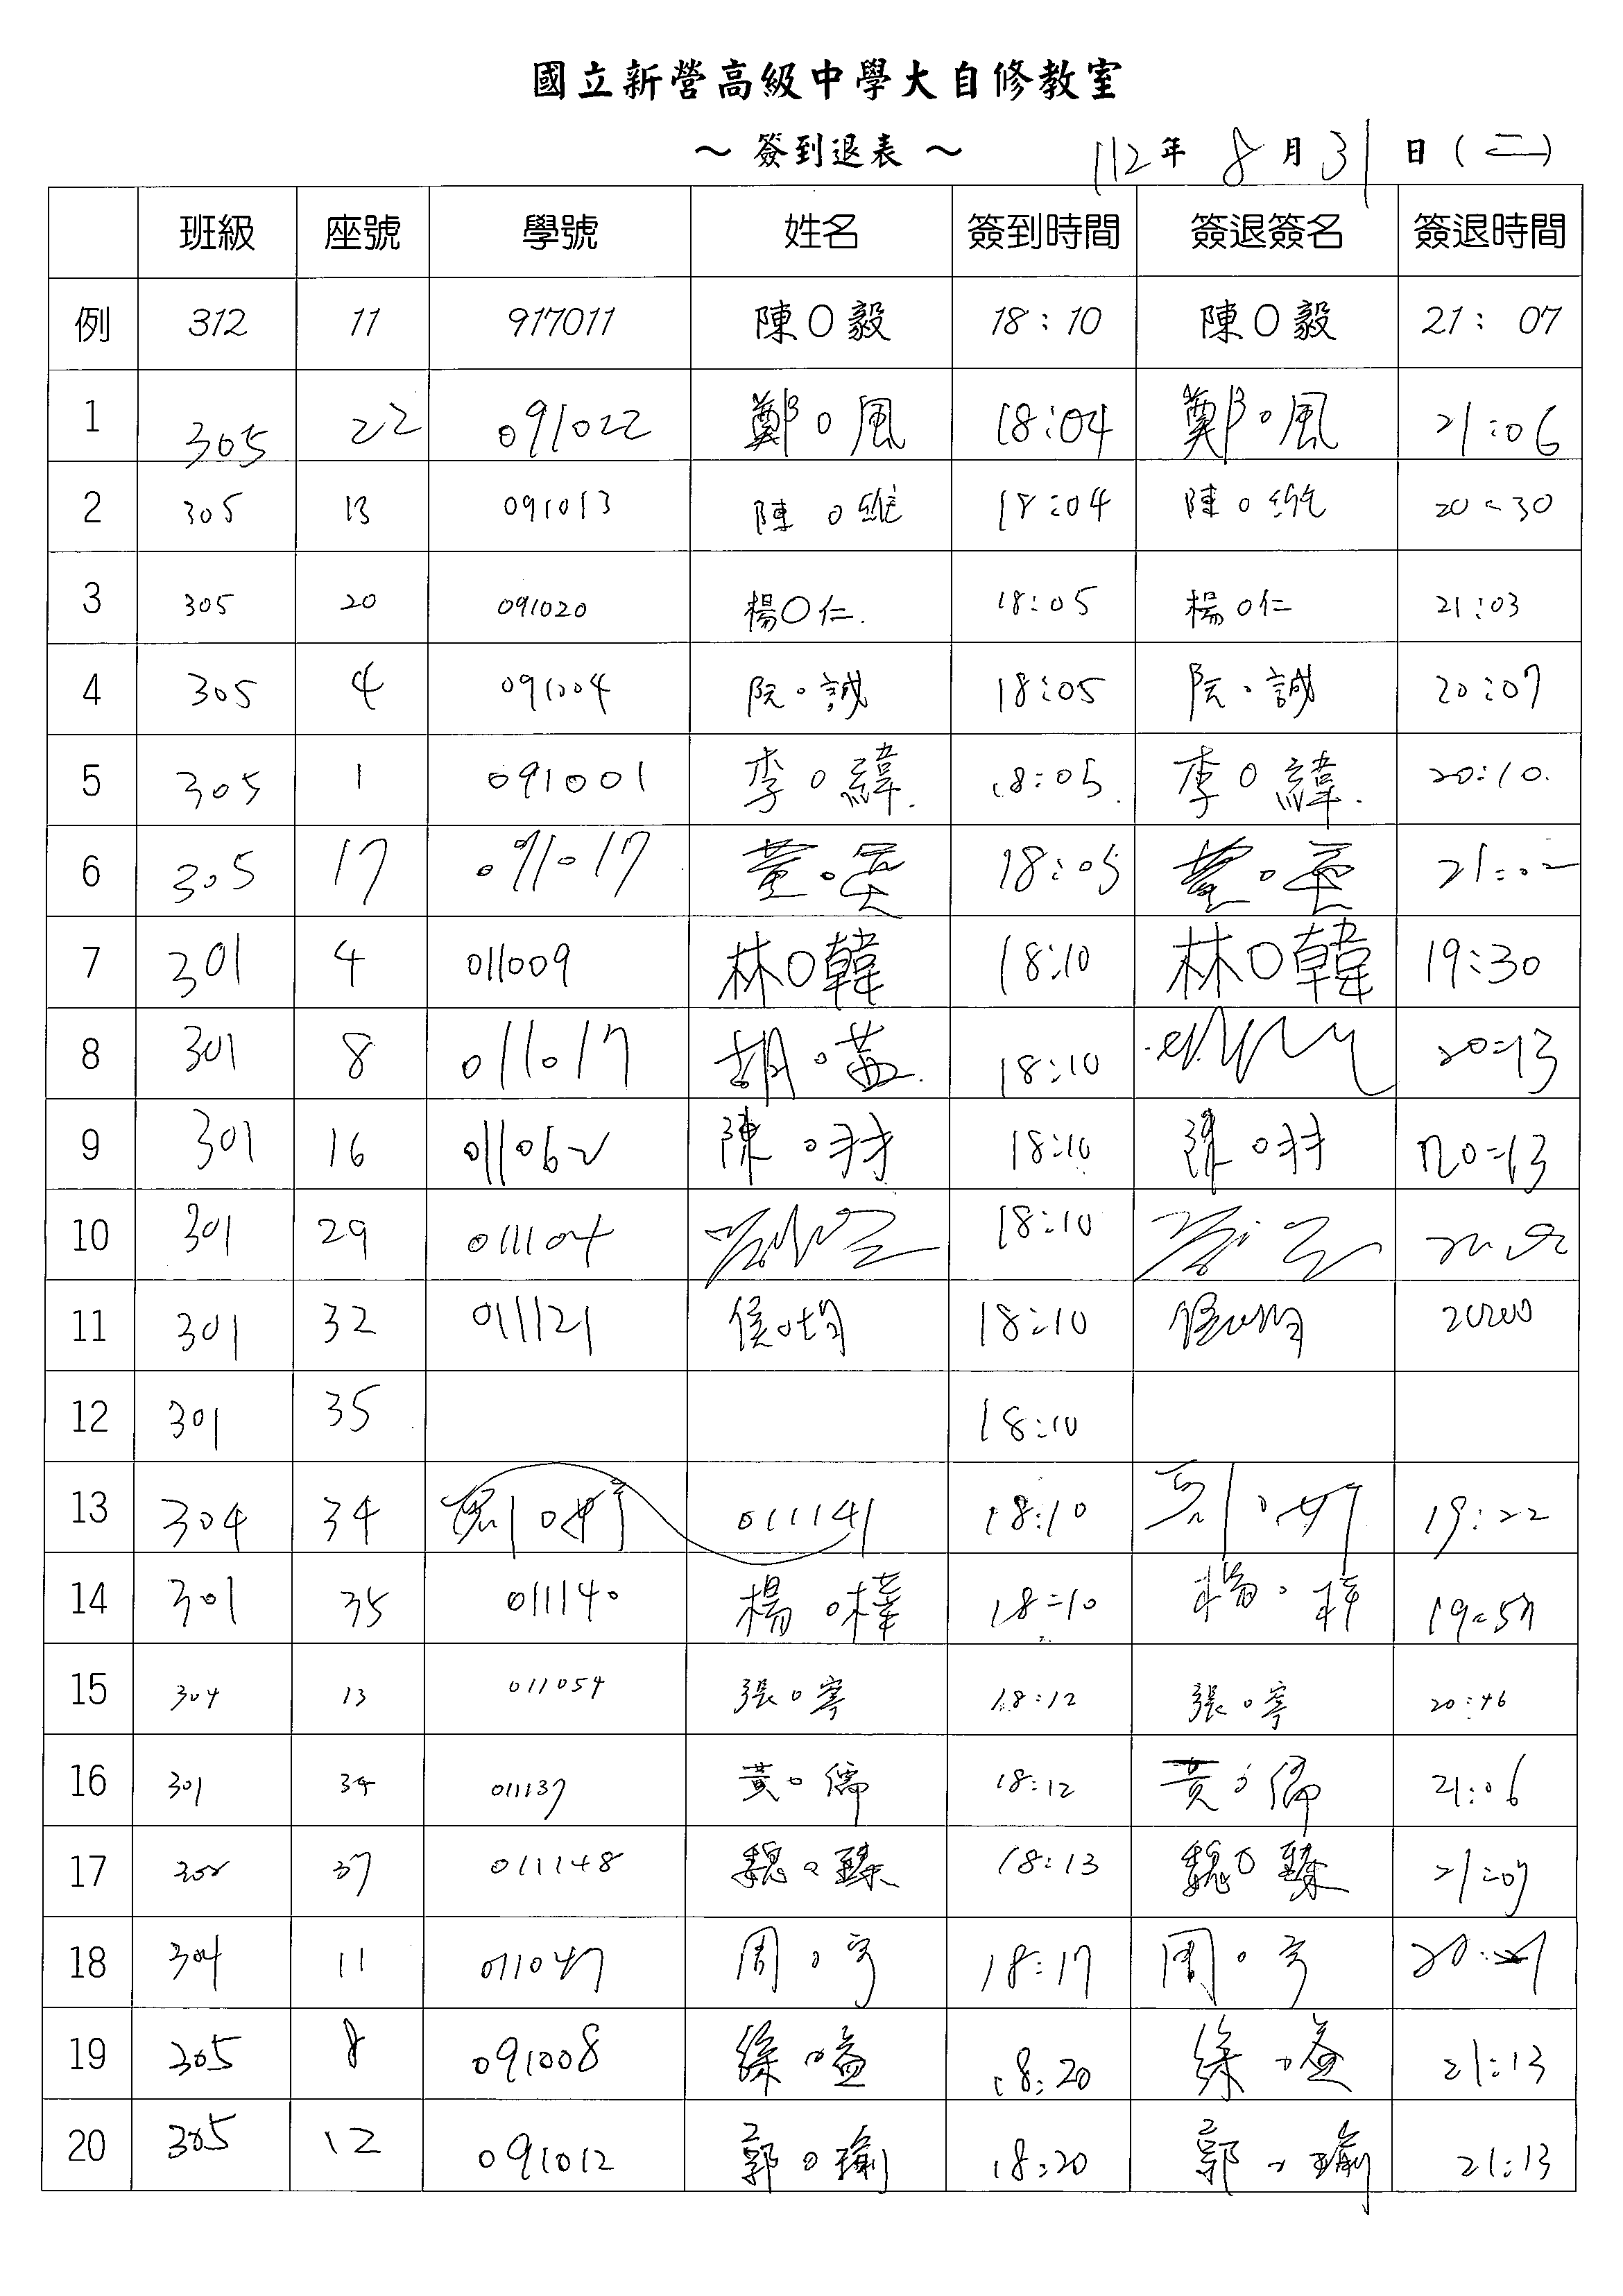 國立新營高級中學大自修教室
～簽到退表～ 112年 8月31日(二)
班級 座號 學號 姓名 簽到時間 簽退簽名 簽退時間
例 312 11 917011 陳○毅 18:10 陳○毅 21:07
1 305 22 091022 鄭○風 18:04 鄭○風 21:06
2 305 13 091013 陳○維 18:04 陳○維 20:30
3 305 20 091020 楊○仁. 18:05 楊○仁 21:03
4 305 4 091004 阮○誠 18:05 阮○誠 20:07
5 305 1 091001 李○緯. 18:05. 李○緯. 20:10.
6 305 17 091017 黃○ 18:05 黃○ 21:02
7 301 4 011009 林○韓 18:10 林○韓 19:30
8 301 8 011017 胡○ 18:10 20:13
9 301 16 011062 陳○ 18:10 陳○ 20:13
10 301 29 011104 18:10
11 301 32 011121 侯○均 18:10 侯○均 20:00
12 301 35 18:10
13 304 34 011141 18:10 19:22
14 301 35 011140 楊○樟 18:10 楊○梓 19:57
15 304 13 011054 張○寧 18:12 張○寧 20:46
16 301 34 011137 黃○儒 18:12 黃○儒 21:06
17 37 011148 魏○臻 18:13 魏○臻 21:07
18 304 11 011047 周○宇 18:17 周○宇
19 305 8 091008 徐○益 18:20 徐○益 21:13
20 305 12 091012 郭○瑜 18:20 郭○瑜 21:13